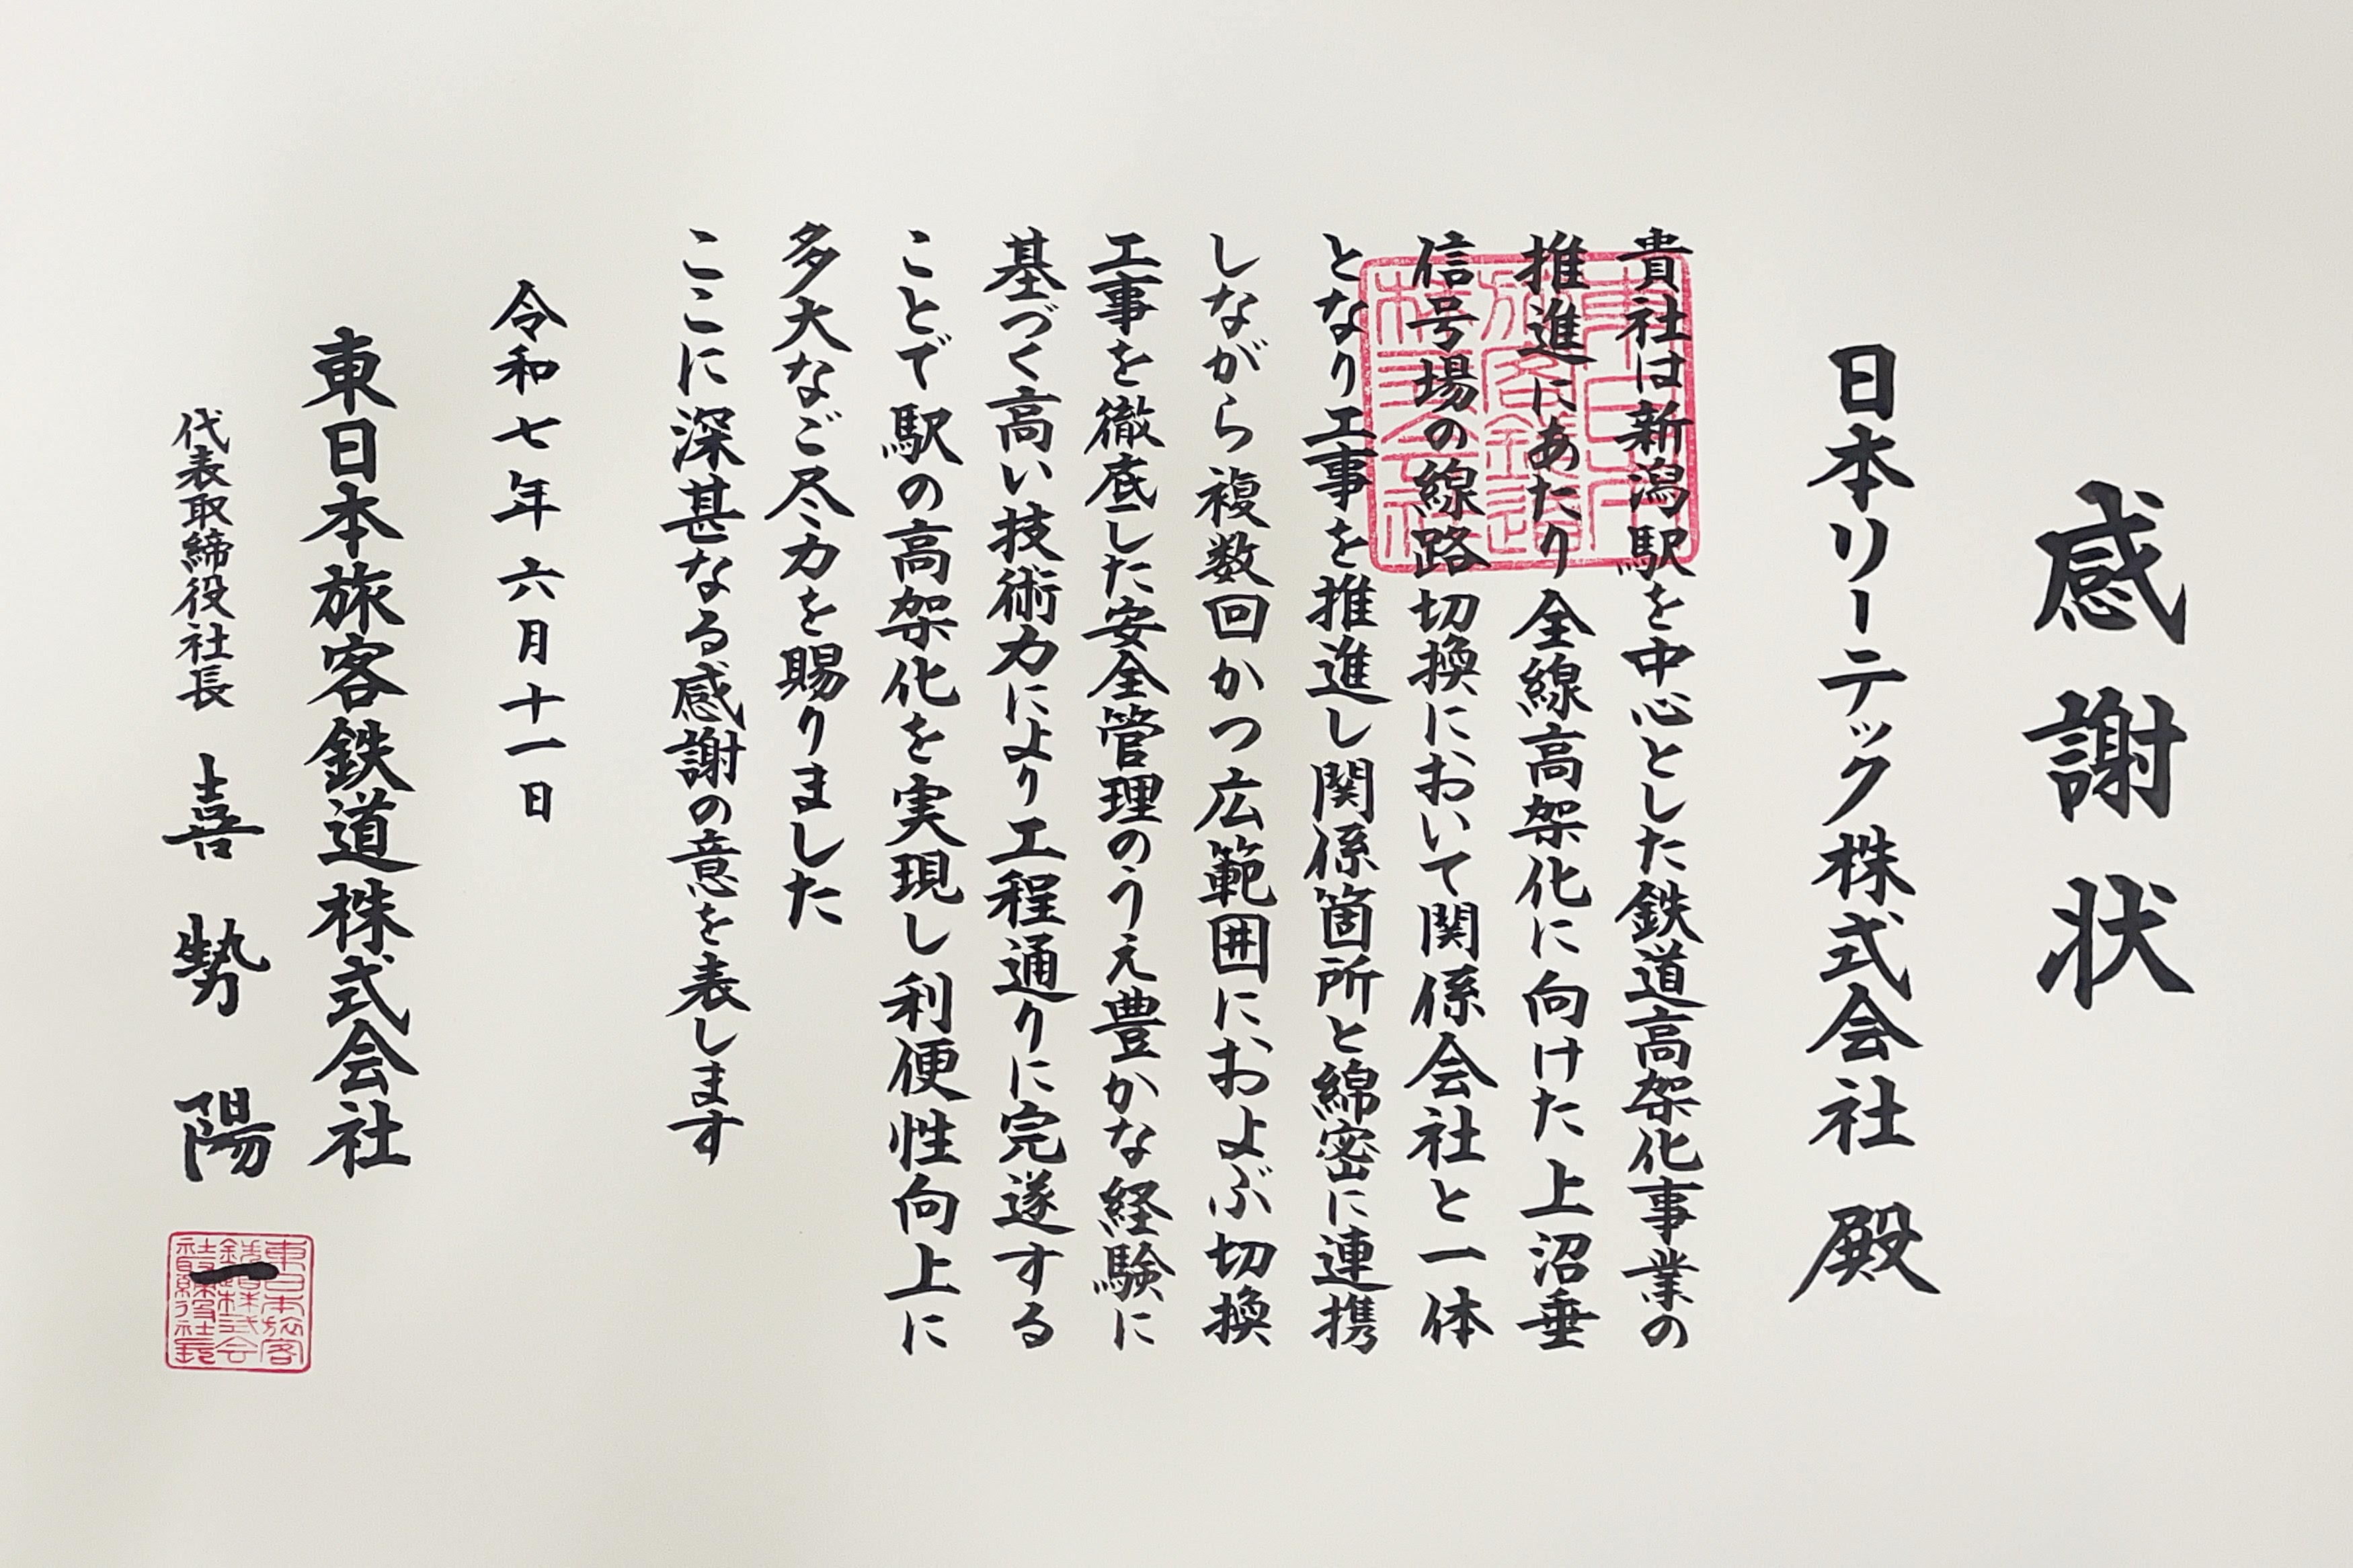 感謝状
日本リーテック株式会社 殿
貴社は新潟駅を中心とした鉄道高架化事業の
推進にあたり全線高架化に向けた上沼垂
信号場の線路切換において関係会社と一体
となり工事を推進し関係箇所と綿密に連携
しながら複数回かつ広範囲におよぶ切換
工事を徹底した安全管理のうえ豊かな経験に
基づく高い技術力により工程通りに完遂する
ことで駅の高架化を実現し利便性向上に
多大なご尽力を賜りました
ここに深甚なる感謝の意を表します
令和七年六月十一日
東日本旅客鉄道株式会社
代表取締役社長 喜㔟陽一